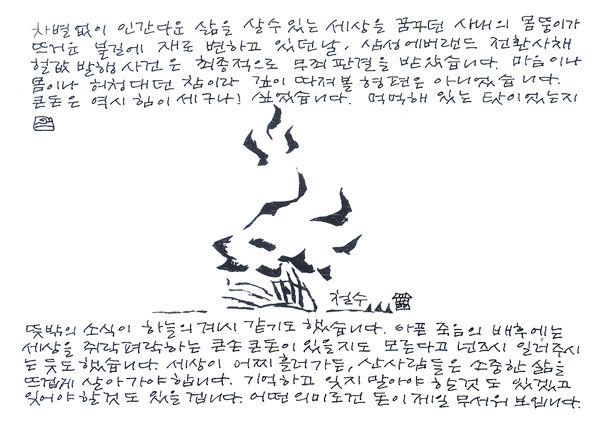 차별없이 인간다운 삶을 살수있는 세상을 꿈꾸던 사내의 몸뚱이가
뜨거운 불길에 재로 변하고 있던날, 삼성에버랜드 전환사채
헐값 발행사건은 최종적으로 무죄판결을 받았습니다. 마음이나
몸이나 허청대던 참이라 깊이 따져볼 형편은 아니었습니다.
큰돈은 역시 힘이 세구나! 싶었습니다. 먹먹해 있는 탓이었는지
철수
뜻밖의 소식이 하늘의 계시 같기도 했습니다. 아픈 죽음의 배후에는
세상을 쥐락펴락하는 큰손큰돈이 있을지도 모른다고 넌즈시 일러주시
는듯도 했습니다. 세상이 어찌 흘러가든, 산사람들은 소중한 삶을
뜨겁게 살아가야합니다. 기억하고 잊지말아야 할것도 있겠고
잊어야 할것도 있을 겁니다. 어떤 의미로건 돈이 제일 무서워 보입니다.